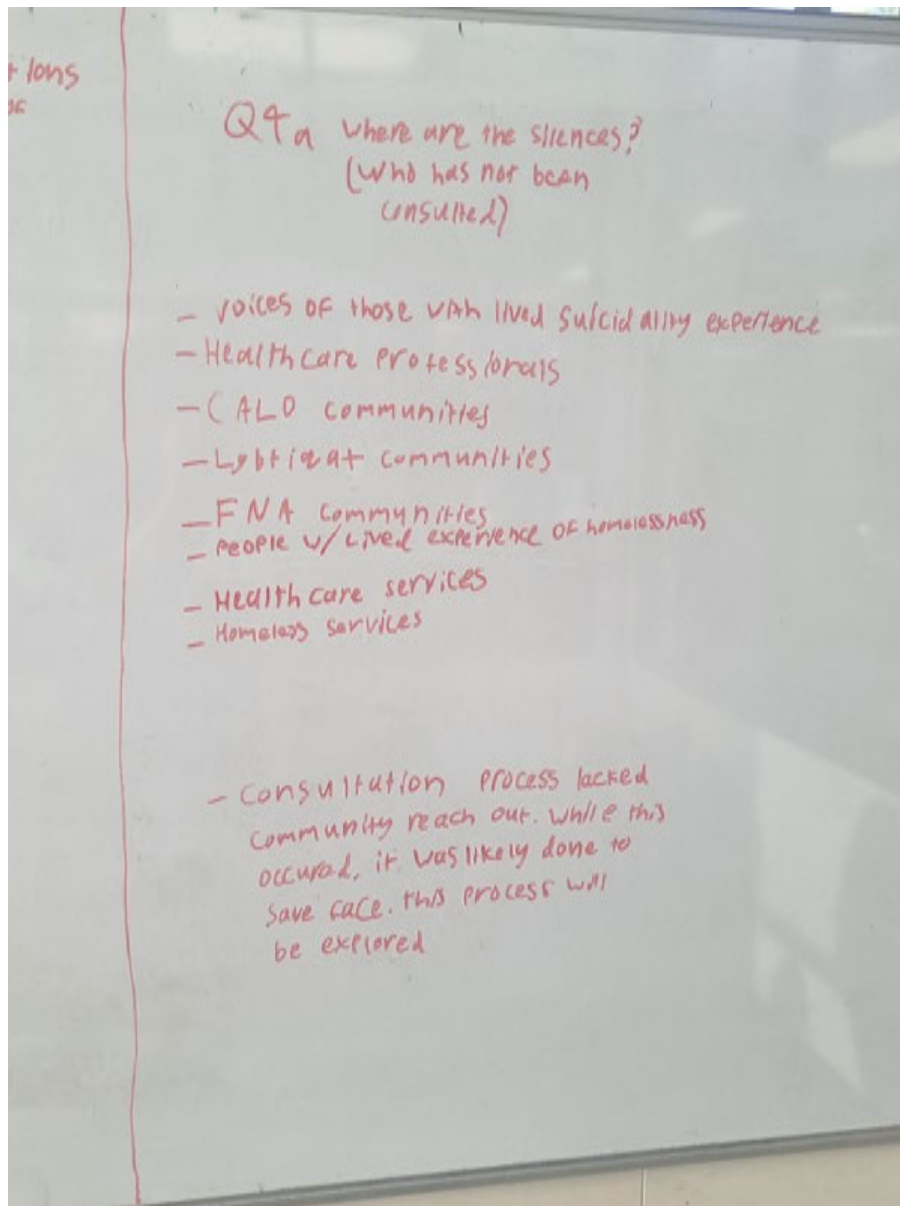 Q4a where are the silences?
(Who has not been
consulted)
- voices of those with lived suicidality experience
- Healthcare professionals
- CALD communities
- Lgbtiqa+ communities
- FNA communities
- People w/ Lived experience of homelessness
- Healthcare services
- Homeless services
- Consultation process lacked
community reach out. While this
occured, it was likely done to
save face. this process will
be explored